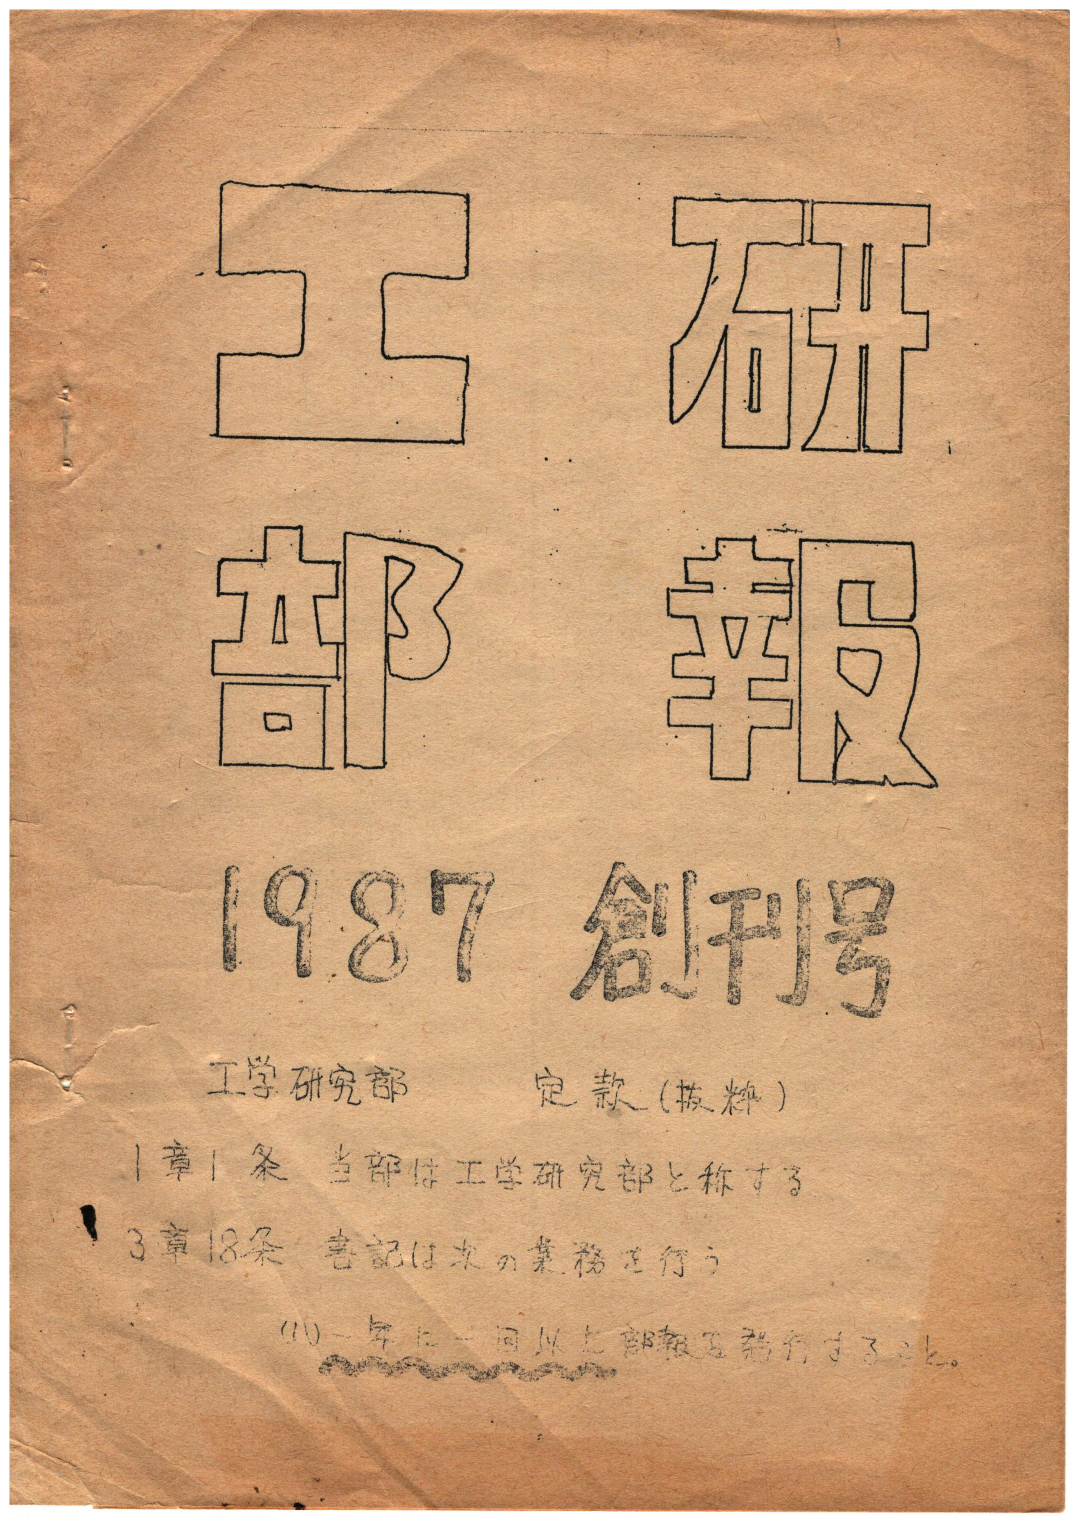 工研
部報
1987 創刊号
工学研究部 定款(抜粋)
1章1条 当部は工学研究部と称する
3章18条 書記は次の業務を行う
(1) 一年に一回以上部報を発行すること。